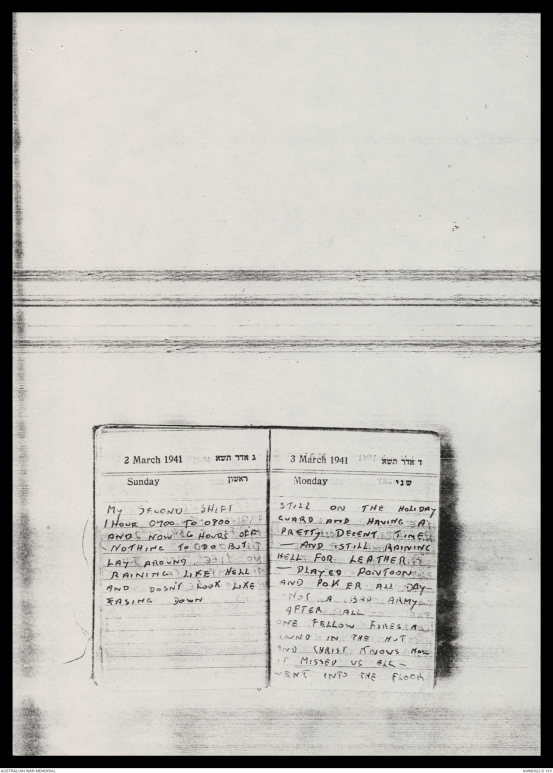 2 March 1941 ג אדר תשא
Sunday ראשון
MY SECOND SHIFT
1 HOUR 0700 TO 0800
AND NOW 6 HOURS OFF
- NOTHING TO DO BUT
LAY AROUND
RAINING LIKE HELL
AND DOSN'T LOOK LIKE
EASING DOWN
3 March 1941 ד אדר תשא
Monday שני
STILL ON THE HOLIDAY
GUARD AND HAVING A
PRETTY DECENT TIME
- AND STILL RAINING
HELL FOR LEATHER
- PLAYED PONTOON
AND POKER ALL DAY
NOT A BAD ARMY
AFTER ALL -
ONE FELLOW FIRES A
ROUND IN THE HUT
AND CHRIST KNOWS HOW
IT MISSED US ALL -
WENT INTO THE FLOOR
AUSTRALIAN WAR MEMORIAL